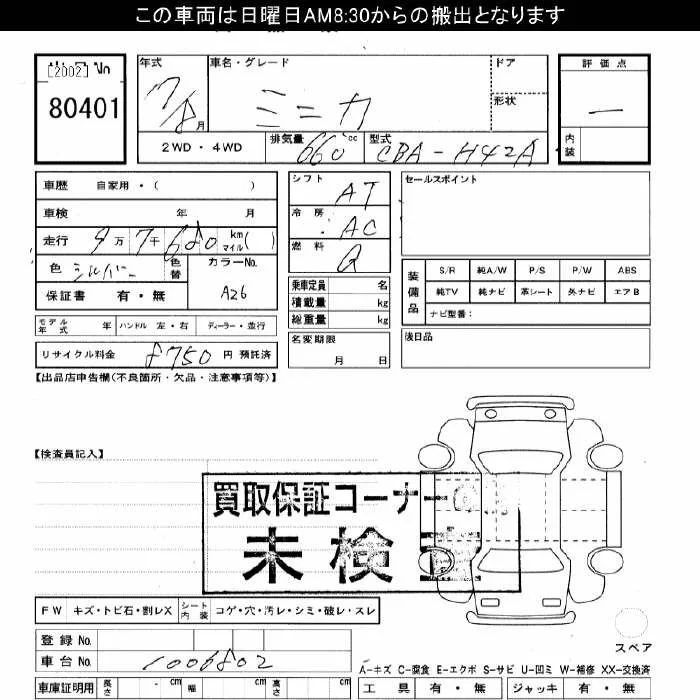 この車両は日曜日AM8:30からの搬出となります
[2002] No
80401
年式
17/8月
車名・グレード
ミニカ
ドア
形状
評価点
—
内装
2WD・4WD
排気量 660 cc
型式 CBA-H42A
車歴 自家用・( )
車検 年 月
走行 9万7千680 km マイル( )
色 シルバー 色替
カラーNo. A26
保証書 有・無
シフト AT
冷房 AC
燃料 G
乗車定員 名
積載量 kg
総重量 kg
名変期限 月 日
セールスポイント
装備品
S/R 純A/W P/S P/W ABS
純TV 純ナビ 革シート 外ナビ エアB
ナビ型番:
後日品
モデル年式 年 ハンドル 左・右 ディーラー・並行
リサイクル料金 8750 円 預託済
【出品店申告欄(不良箇所・欠品・注意事項等)】
【検査員記入】
買取保証コーナー
未検
FW キズ・トビ石・割レX シート内装 コゲ・穴・汚レ・シミ・破レ・スレ
登録 No.
車台 No. 1006802
車庫証明用 長さ cm 幅 cm 高さ cm
スペア
A-キズ C-腐食 E-エクボ S-サビ U-凹ミ W-補修 XX-交換済
工具 有・無 ジャッキ 有・無